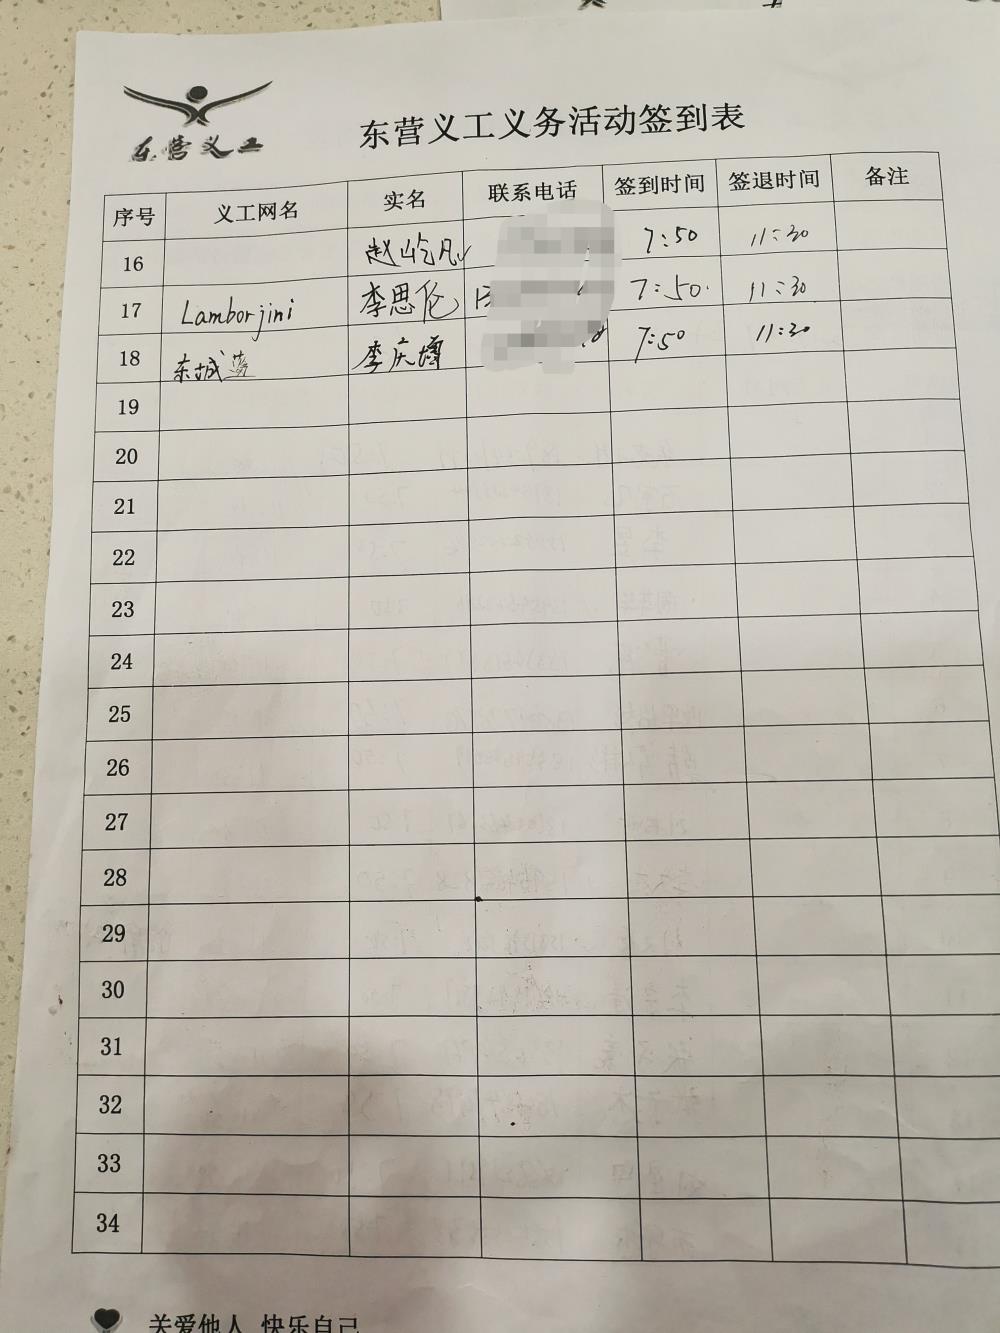 东营义工
东营义工义务活动签到表
序号 义工网名 实名 联系电话 签到时间 签退时间 备注
16 赵屹凡 7:50 11:30
17 Lamborjini 李思伦 7:50 11:30
18 东城 李庆增 7:50 11:30
19
20
21
22
23
24
25
26
27
28
29
30
31
32
33
34
关爱他人 快乐自己